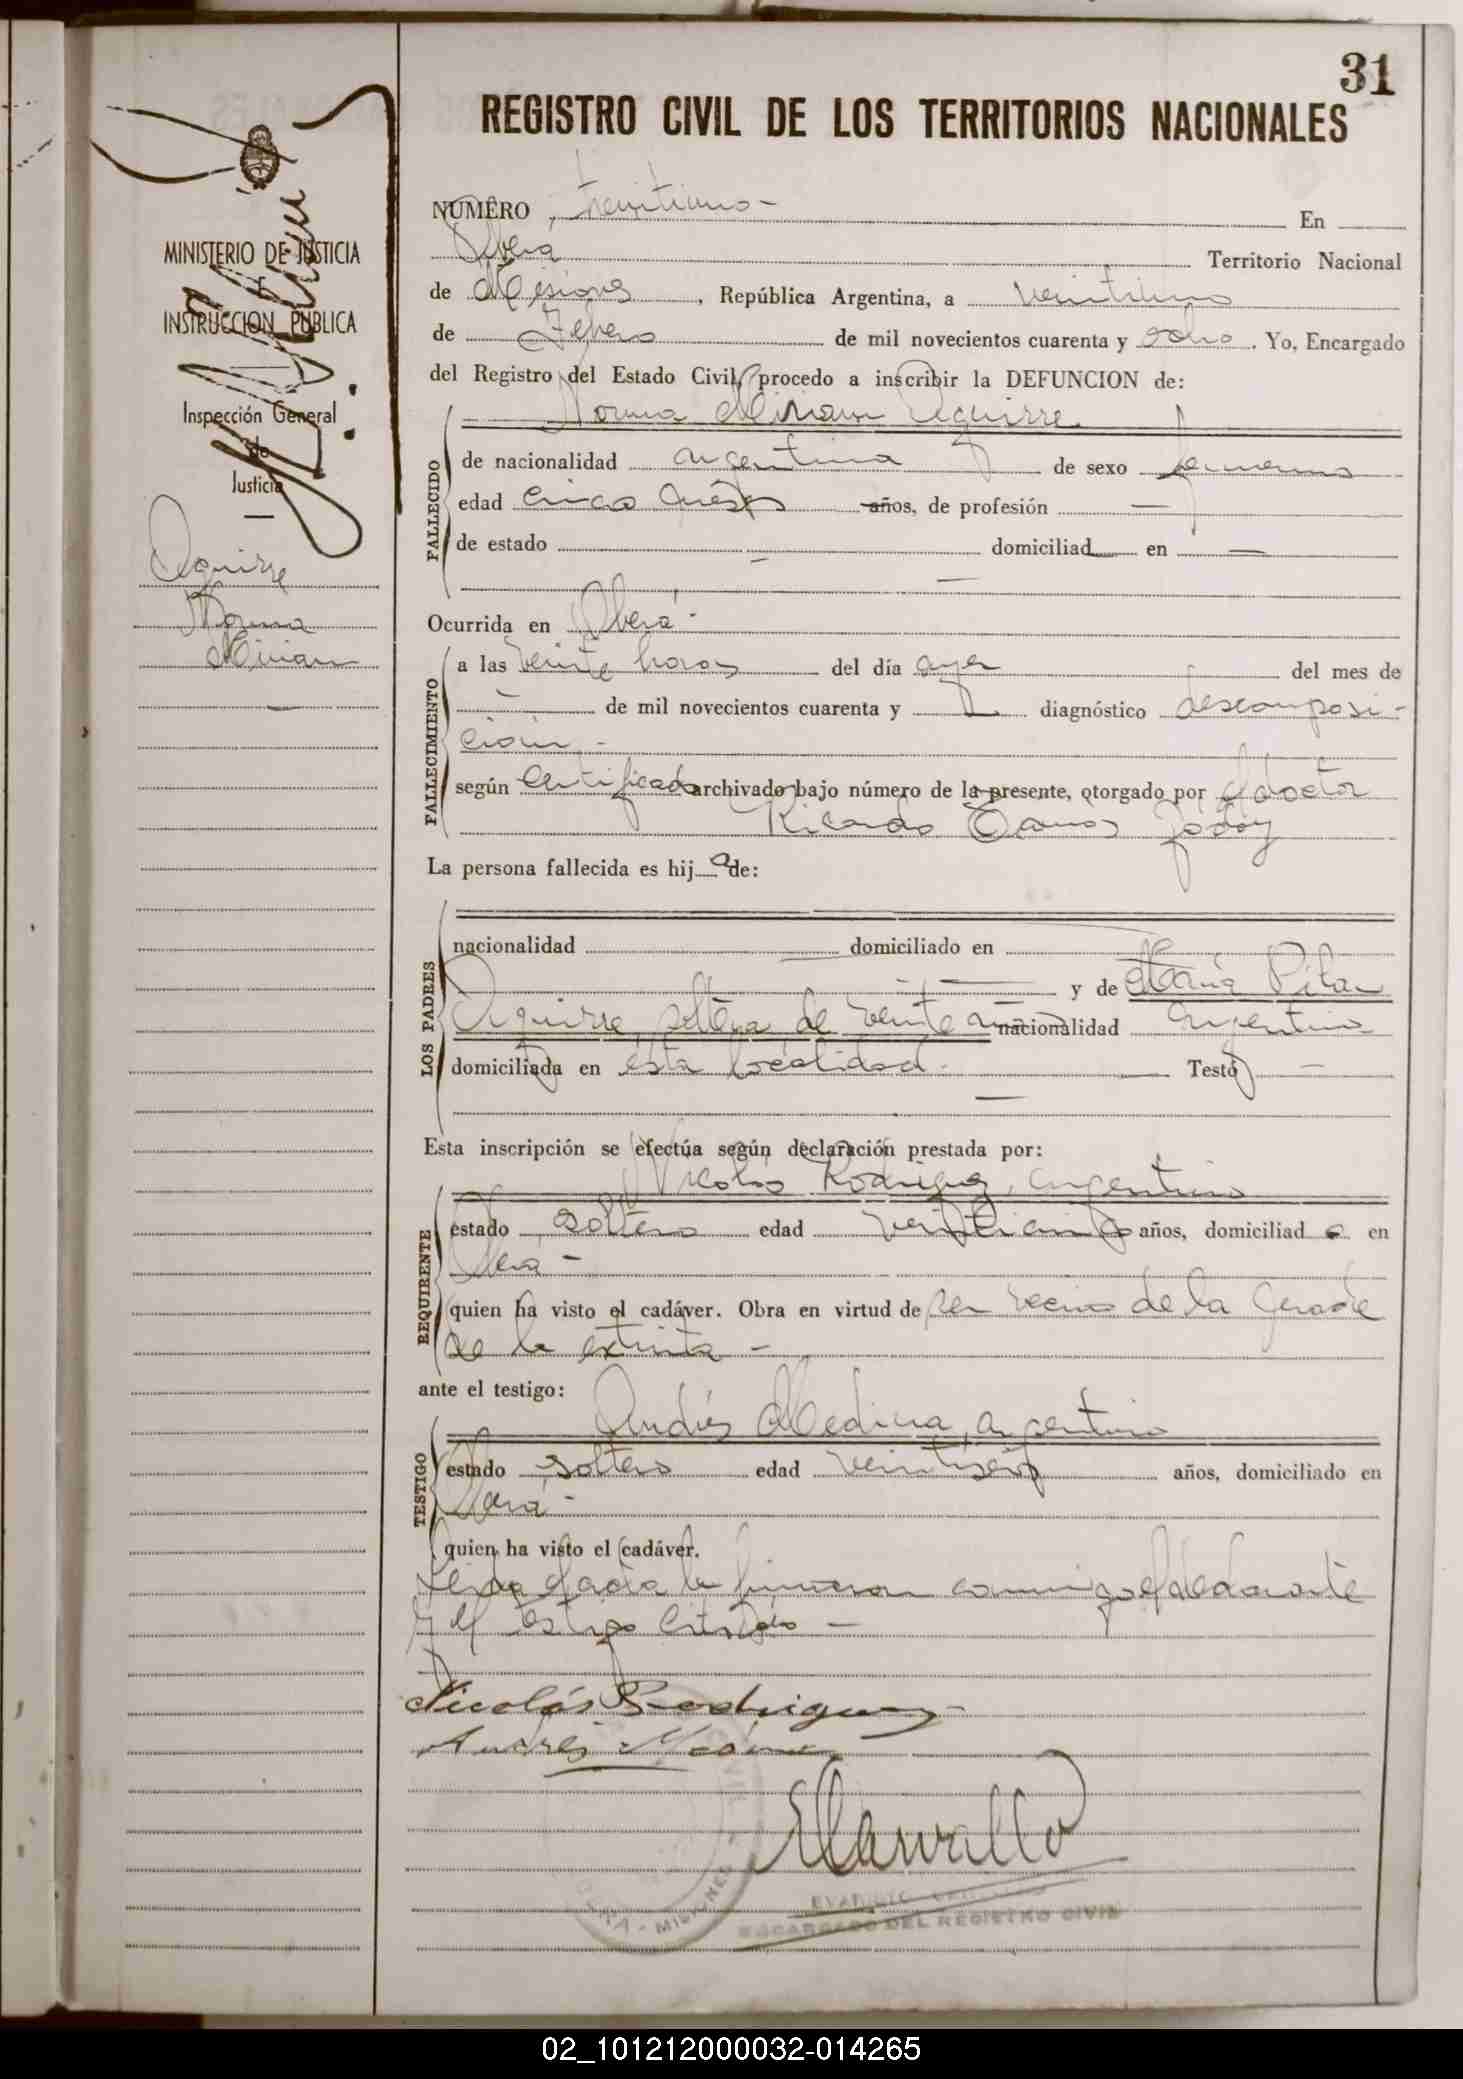 31
REGISTRO CIVIL DE LOS TERRITORIOS NACIONALES
MINISTERIO DE JUSTICIA
E
INSTRUCCION PUBLICA
Inspección General
de
Justicia
Aguirre
Norma
Mirian
NUMERO treintiuno - En
Oberá Territorio Nacional
de Misiones, República Argentina, a veintiuno
de Febrero de mil novecientos cuarenta y ocho. Yo, Encargado
del Registro del Estado Civil, procedo a inscribir la DEFUNCION de:
Norma Miriam Aguirre
FALLECIDO
de nacionalidad argentina de sexo femenino
edad cinco meses años, de profesión —
de estado — domiciliad en —
Ocurrida en Oberá -
FALLECIMIENTO
a las veinte horas del día ayer del mes de
— de mil novecientos cuarenta y diagnóstico descomposi-
ción -
según certificado archivado bajo número de la presente, otorgado por el doctor
Ricardo Godoy
La persona fallecida es hija de:
LOS PADRES
nacionalidad domiciliado en
y de María Pilar
Aguirre, soltera de veinte nacionalidad argentina
domiciliada en esta localidad - Testó —
Esta inscripción se efectúa según declaración prestada por:
Nicolás Rodriguez, argentino
REQUIRENTE
estado soltero edad veinticinco años, domiciliado en
Oberá -
quien ha visto el cadáver. Obra en virtud de ser vecino de la
de la extinta -
ante el testigo:
Andrés Medina, argentino
TESTIGO
estado soltero edad veintiseis años, domiciliado en
Oberá -
quien ha visto el cadáver.
Leida el acta la firmaron conmigo el declarante
y el testigo citado -
Nicolás Rodriguez
Andrés Medina
ECarvallo
ENCARGADO DEL REGISTRO CIVIL
OBERA - MISIONES
02_101212000032-014265